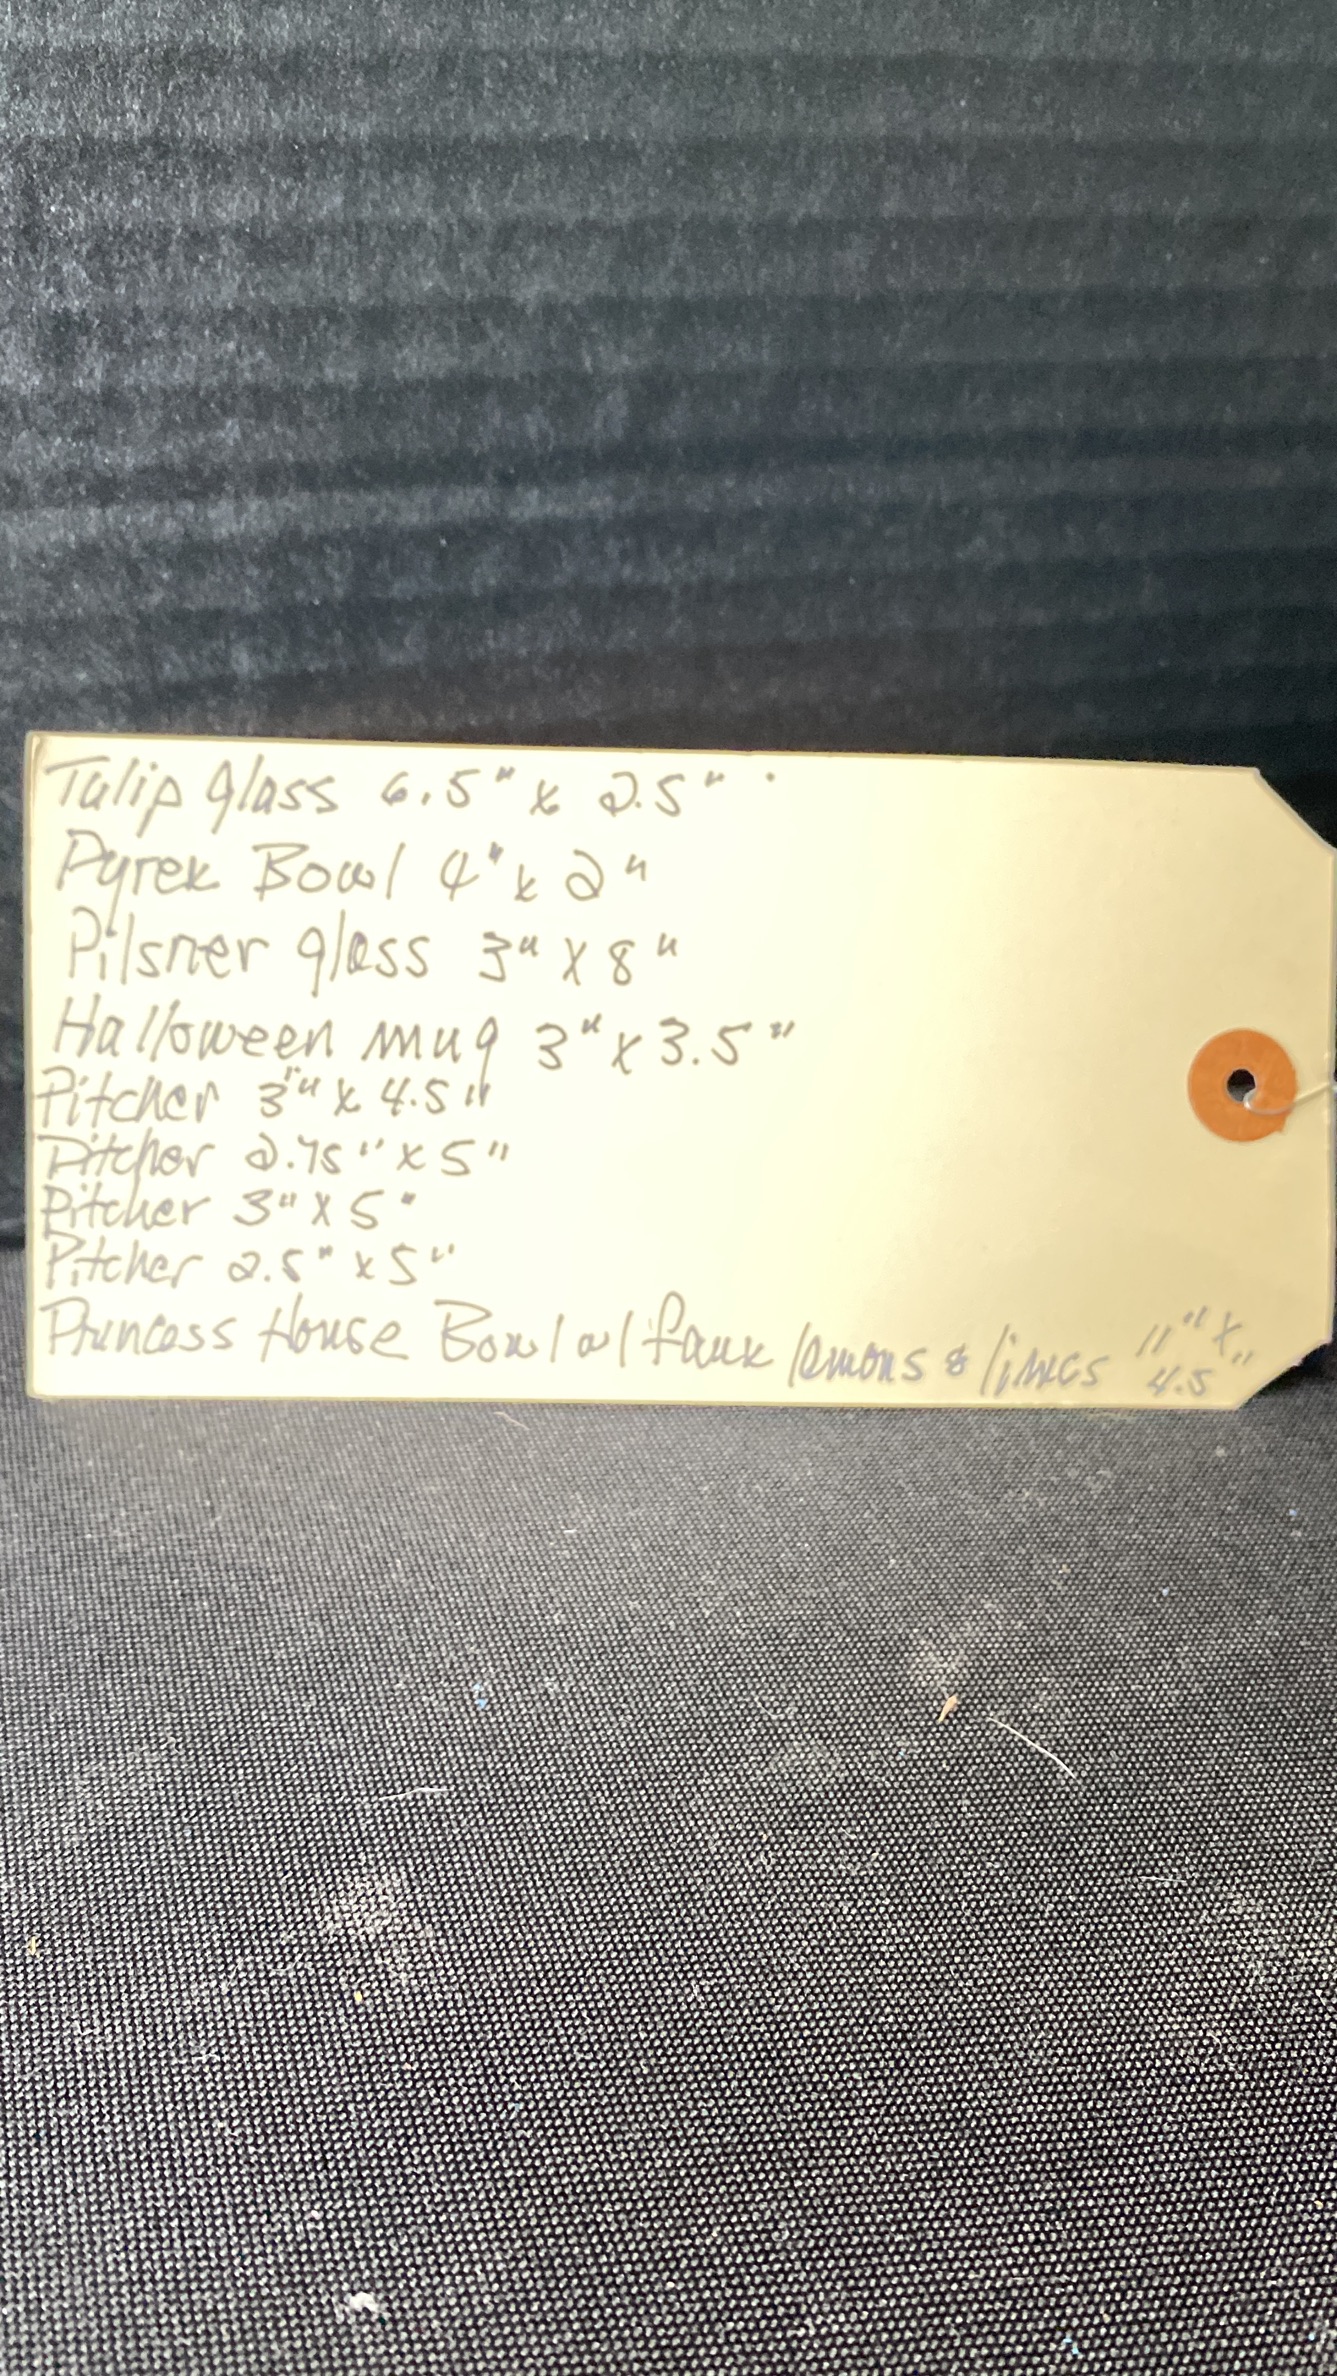 Tulip glass 6.5" x 2.5"
Pyrex Bowl 4" x 2"
Pilsner glass 3" X 8"
Halloween mug 3" x 3.5"
Pitcher 3" x 4.5"
Pitcher 2.75" x 5"
Pitcher 3" X 5"
Pitcher 2.5" x 5"
Princess House Bowl w/ faux lemons & limes 11" x
4.5"